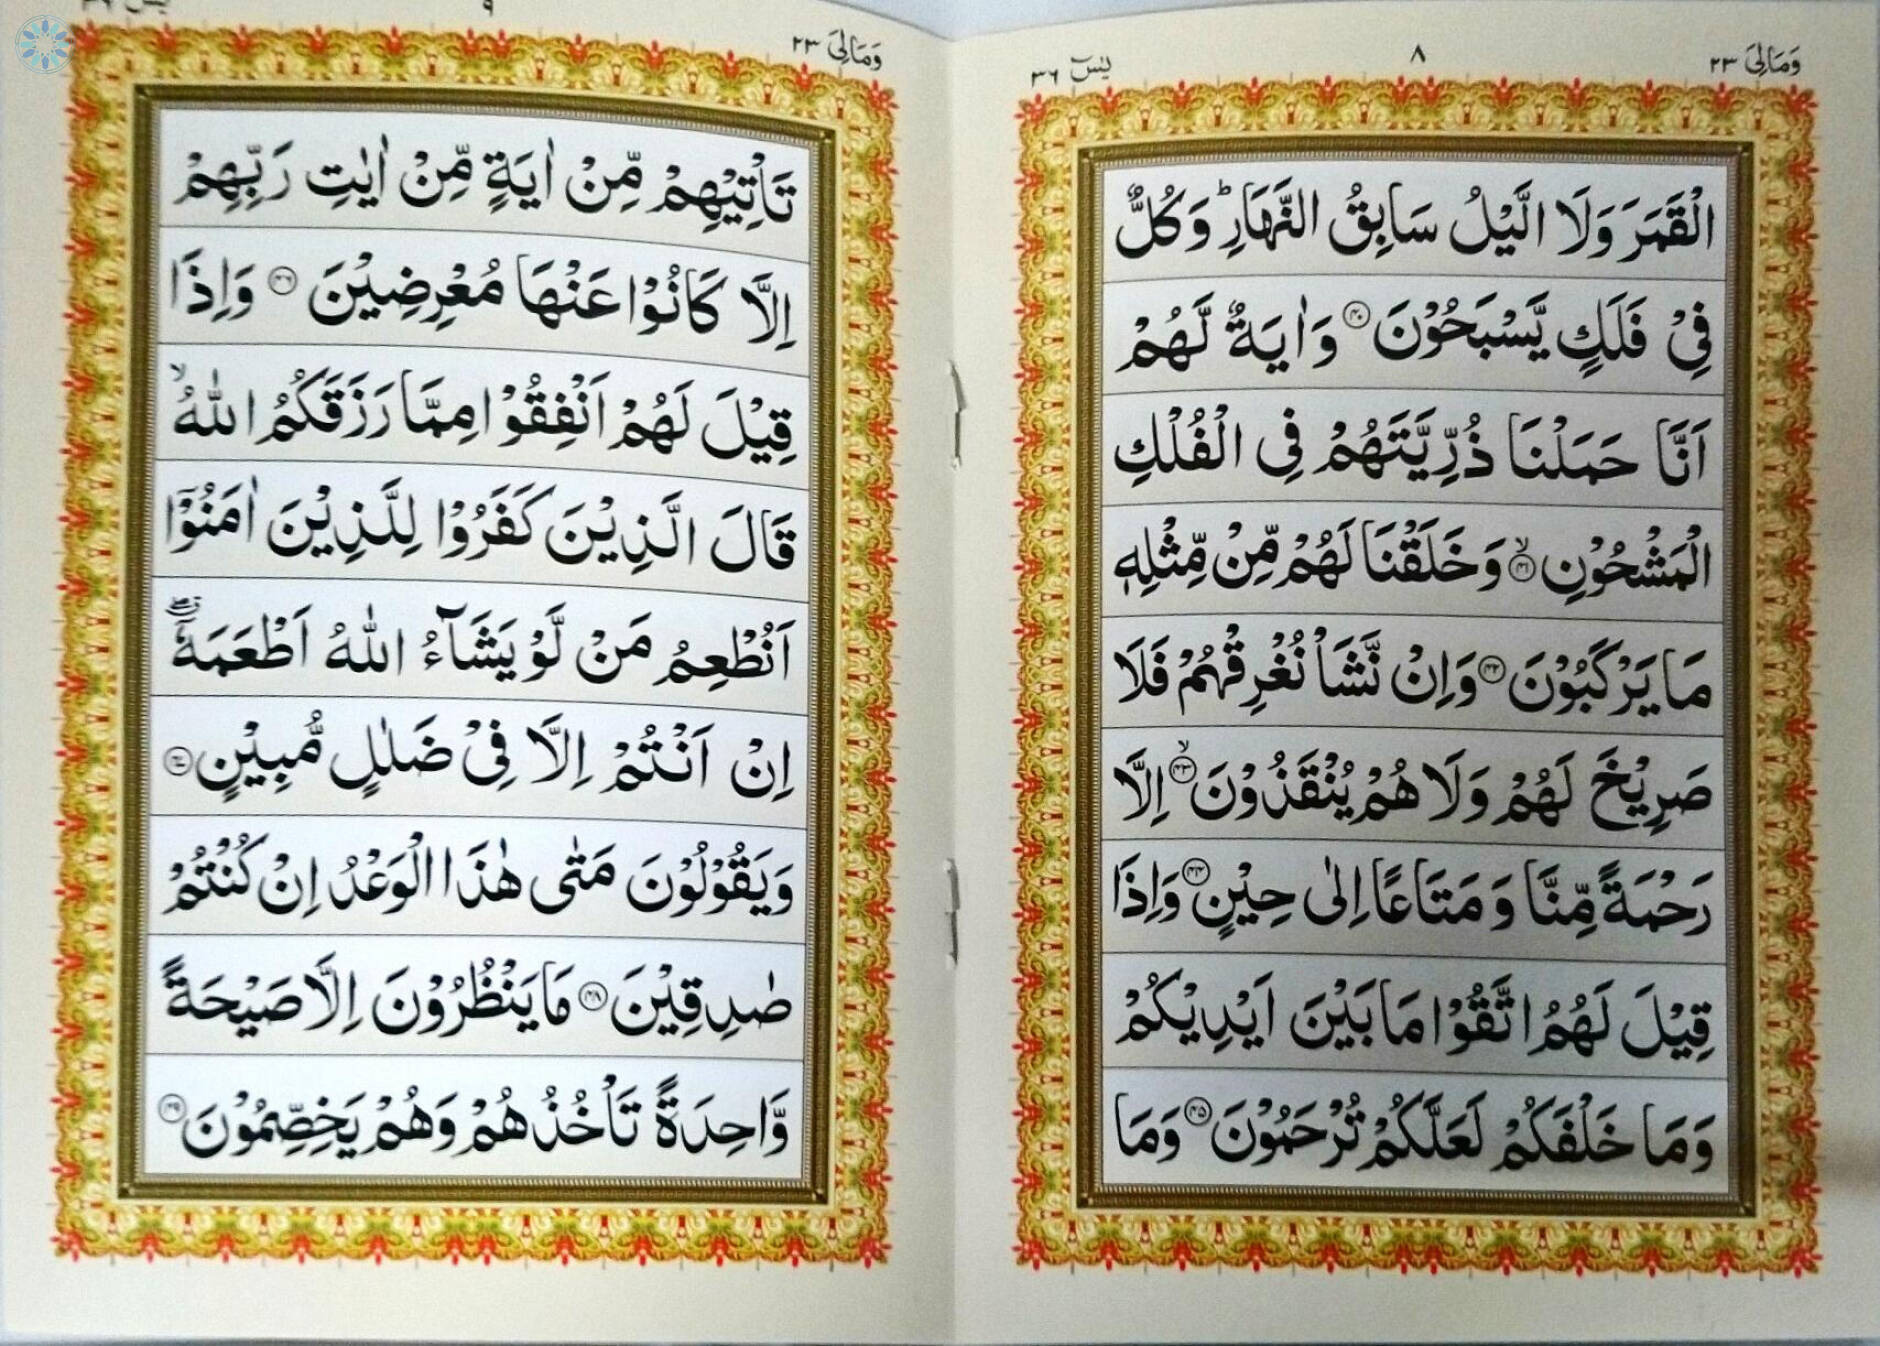 وَمَالِیَ ٢٣
٨
یٰسٓ ٣٦
الْقَمَرَ وَلَا الَّيْلُ سَابِقُ النَّهَارِ ؕ وَكُلٌّ
فِىْ فَلَكٍ يَّسْبَحُوْنَ ۞٤٠ وَاٰيَةٌ لَّهُمْ
اَنَّا حَمَلْنَا ذُرِّيَّتَهُمْ فِى الْفُلْكِ
الْمَشْحُوْنِ ۙ۞٤١ وَخَلَقْنَا لَهُمْ مِّنْ مِّثْلِهٖ
مَا يَرْكَبُوْنَ ۞٤٢ وَاِنْ نَّشَاْ نُغْرِقْهُمْ فَلَا
صَرِيْخَ لَهُمْ وَلَا هُمْ يُنْقَذُوْنَ ۙ۞٤٣ اِلَّا
رَحْمَةً مِّنَّا وَمَتَاعًا اِلٰى حِيْنٍ ۞٤٤ وَاِذَا
قِيْلَ لَهُمُ اتَّقُوْا مَا بَيْنَ اَيْدِيْكُمْ
وَمَا خَلْفَكُمْ لَعَلَّكُمْ تُرْحَمُوْنَ ۞٤٥ وَمَا
وَمَالِیَ ٢٣
٩
یٰسٓ ٣٦
تَاْتِيْهِمْ مِّنْ اٰيَةٍ مِّنْ اٰيٰتِ رَبِّهِمْ
اِلَّا كَانُوْا عَنْهَا مُعْرِضِيْنَ ۞٤٦ وَاِذَا
قِيْلَ لَهُمْ اَنْفِقُوْا مِمَّا رَزَقَكُمُ اللّٰهُ ۙ
قَالَ الَّذِيْنَ كَفَرُوْا لِلَّذِيْنَ اٰمَنُوْٓا
اَنُطْعِمُ مَنْ لَّوْ يَشَآءُ اللّٰهُ اَطْعَمَهٗٓ
اِنْ اَنْتُمْ اِلَّا فِىْ ضَلٰلٍ مُّبِيْنٍ ۞٤٧
وَيَقُوْلُوْنَ مَتٰى هٰذَا الْوَعْدُ اِنْ كُنْتُمْ
صٰدِقِيْنَ ۞٤٨ مَا يَنْظُرُوْنَ اِلَّا صَيْحَةً
وَّاحِدَةً تَاْخُذُهُمْ وَهُمْ يَخِصِّمُوْنَ ۞٤٩